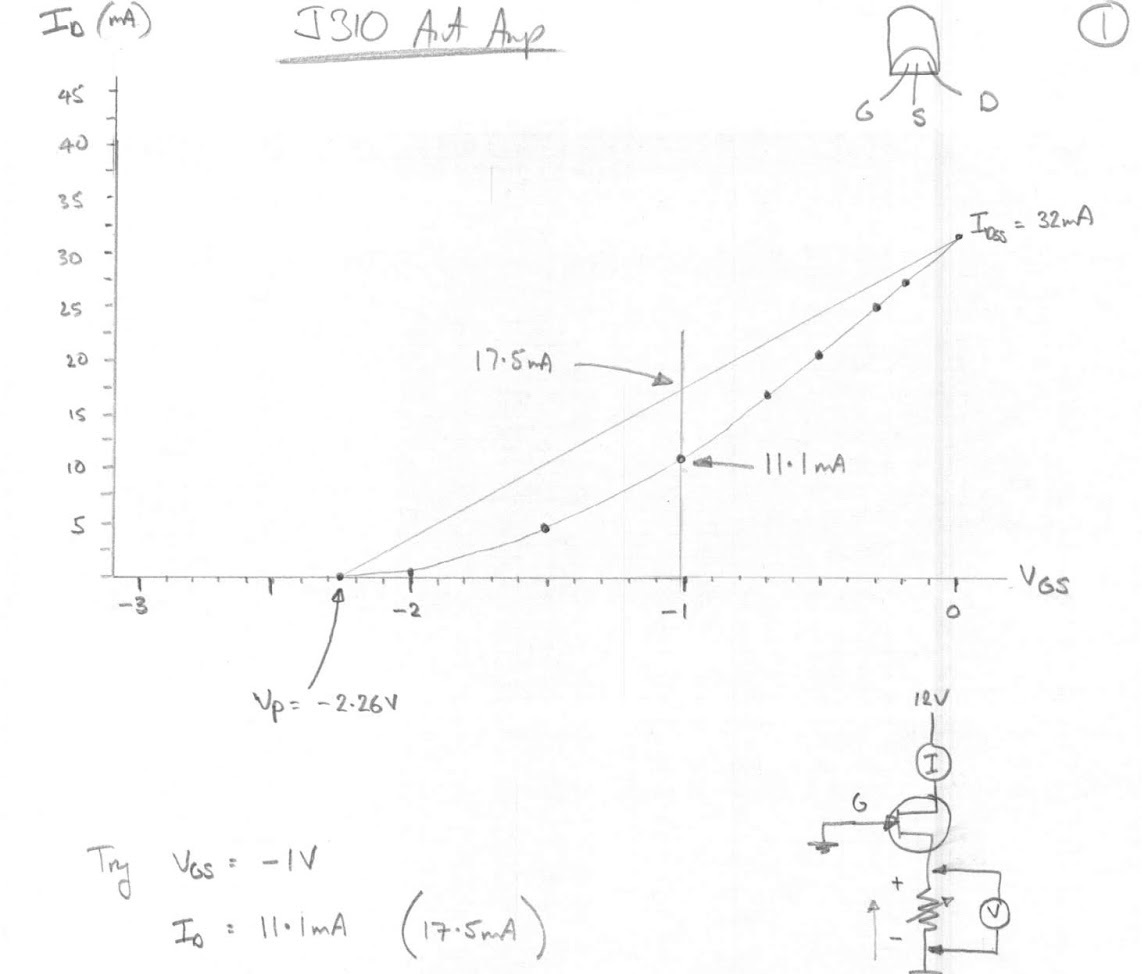 J310 Ant Amp
1
I_D (mA)
G S D
45
40
35
30
25
20
15
10
5
I_DSS = 32mA
17.5mA
11.1mA
-3 -2 -1 0 V_GS
V_P = -2.26V
12V
I
G
+
V
-
Try V_GS = -1V
I_D = 11.1mA (17.5mA)